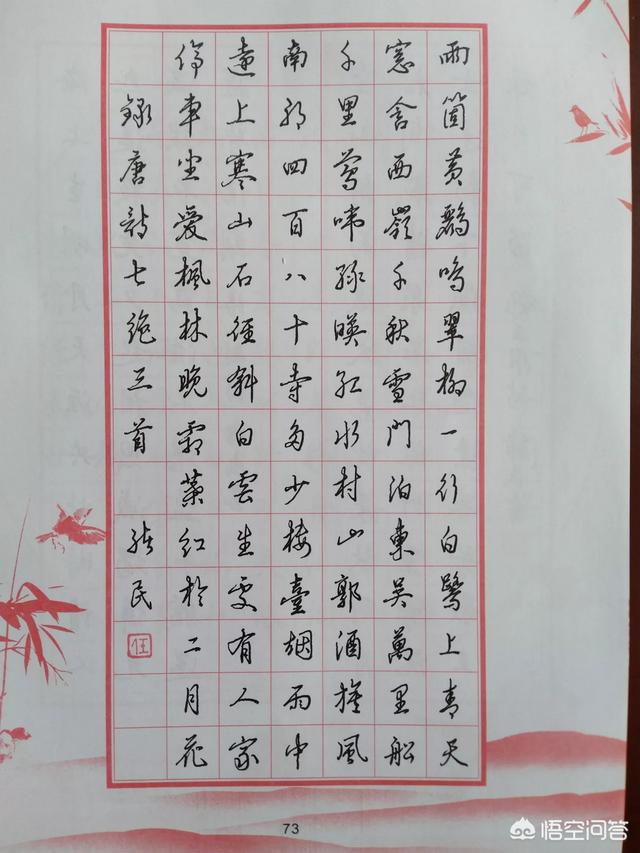 兩箇黃鸝鳴翠柳一行白鷺上青天
窓含西嶺千秋雪門泊東吳萬里船
千里鶯啼綠暎紅水村山郭酒旗風
南朝四百八十寺多少樓臺烟雨中
遠上寒山石徑斜白雲生處有人家
停車坐愛楓林晚霜葉紅於二月花
錄唐詩七絕三首 民
73
悟空问答